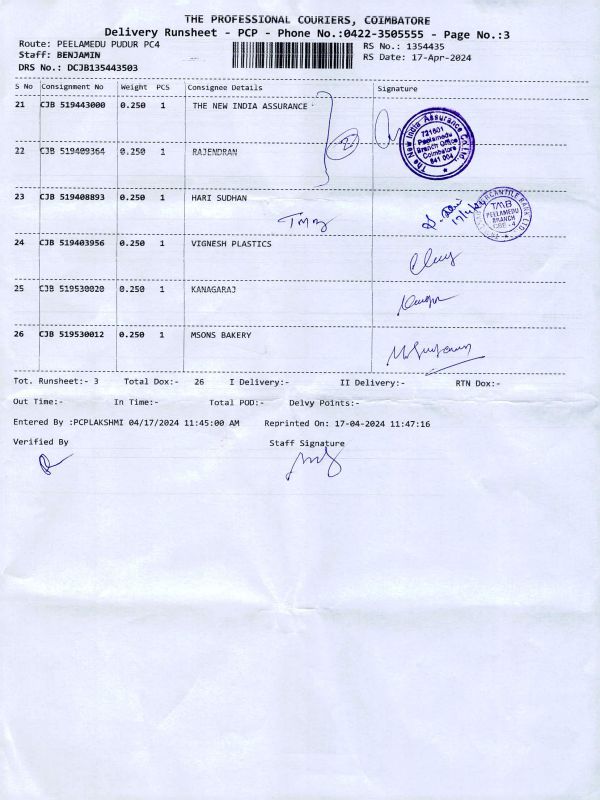 THE PROFESSIONAL COURIERS, COIMBATORE
Delivery Runsheet - PCP - Phone No.:0422-3505555 - Page No.:3
Route: PEELAMEDU PUDUR PC4
RS No.: 1354435
Staff: BENJAMIN
RS Date: 17-Apr-2024
DRS No.: DCJB135443503
S No Consignment No Weight PCS Consignee Details Signature
21 CJB 519443000 0.250 1 THE NEW INDIA ASSURANCE
2
The New India Assurance Co. Ltd.
721601
Peelamedu
Branch Office
Coimbatore
641 004
22 CJB 519409364 0.250 1 RAJENDRAN
23 CJB 519408893 0.250 1 HARI SUDHAN
TMB
17/4/24
TMB
PEELAMEDU
BRANCH
CBE - 4
24 CJB 519403956 0.250 1 VIGNESH PLASTICS
25 CJB 519530020 0.250 1 KANAGARAJ
26 CJB 519530012 0.250 1 MSONS BAKERY
Tot. Runsheet:- 3 Total Dox:- 26 I Delivery:- II Delivery:- RTN Dox:-
Out Time:- In Time:- Total POD:- Delvy Points:-
Entered By :PCPLAKSHMI 04/17/2024 11:45:00 AM Reprinted On: 17-04-2024 11:47:16
Verified By Staff Signature